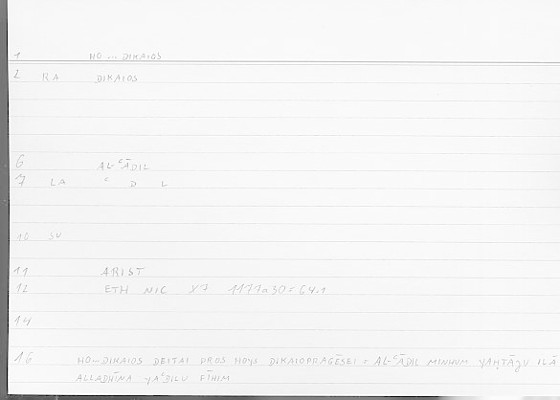 1 HO... DIKAIOS
2 RA DIKAIOS
6 AL-ʿĀDIL
7 LA ʿ D L
10 SV
11 ARIST
12 ETH NIC 1177a30 = 64.1
14
16 HO... DIKAIOS DEITAI PROS HOYS DIKAIOPRAGĒSEI = AL-ʿĀDIL MINHUM YAḤTĀǦU ILĀ
ALLADHĪNA YAʿDILU FĪHIM